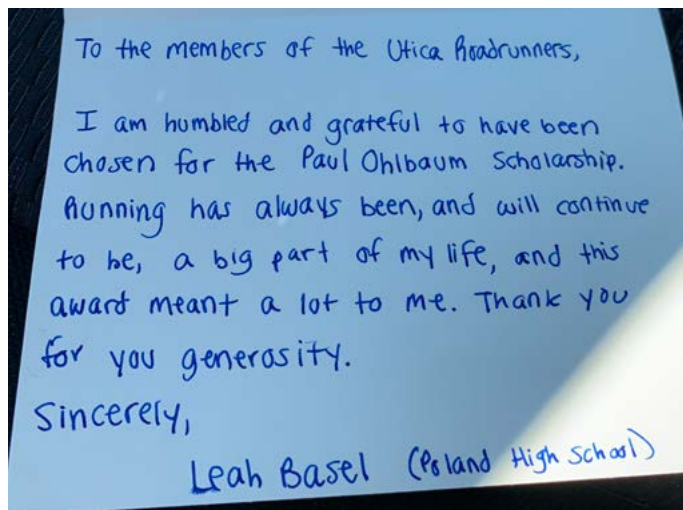 To the members of the Utica Roadrunners,
I am humbled and grateful to have been
chosen for the Paul Ohlbaum Scholarship.
Running has always been, and will continue
to be, a big part of my life, and this
award meant a lot to me. Thank you
for you generosity.
Sincerely,
Leah Basel (Poland High School)